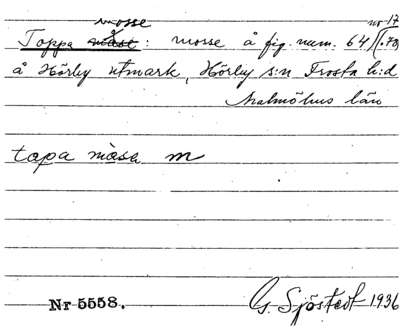 mosse no 17
Toppa : mosse å fig. num. 64
å Hörby utmark, Hörby s:n Frosta h:d
Malmöhus län
tapa màsa m
Nr 5558. G. Sjöstedt 1936